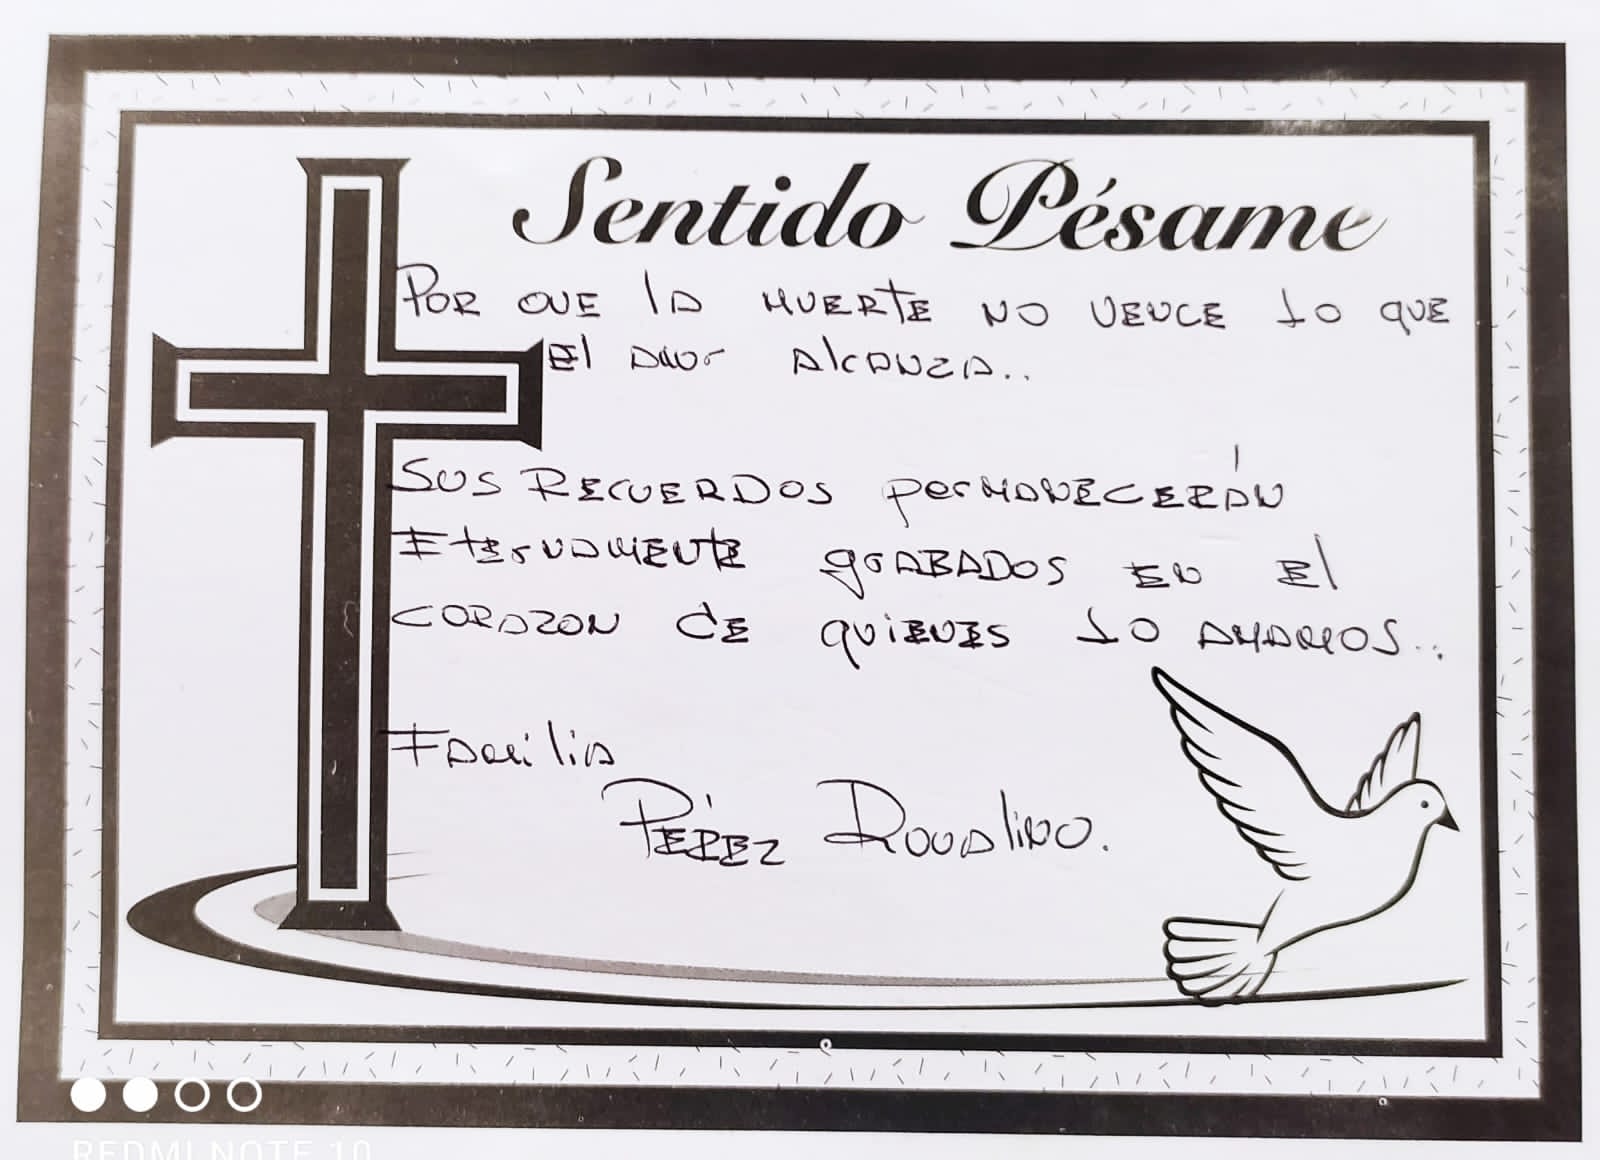 Sentido Pésame
POR QUE lA MUERTE NO VENCE lO QUE
El AMor AlcANZA..
SUS RECUERDOS perMANECERÁN
EterNAMENte grABADOS EN El
CORAZON dE QUiENES lO AMAMOS...
FAMiliA
PÉREZ ROVAliNO.
REDMI NOTE 10